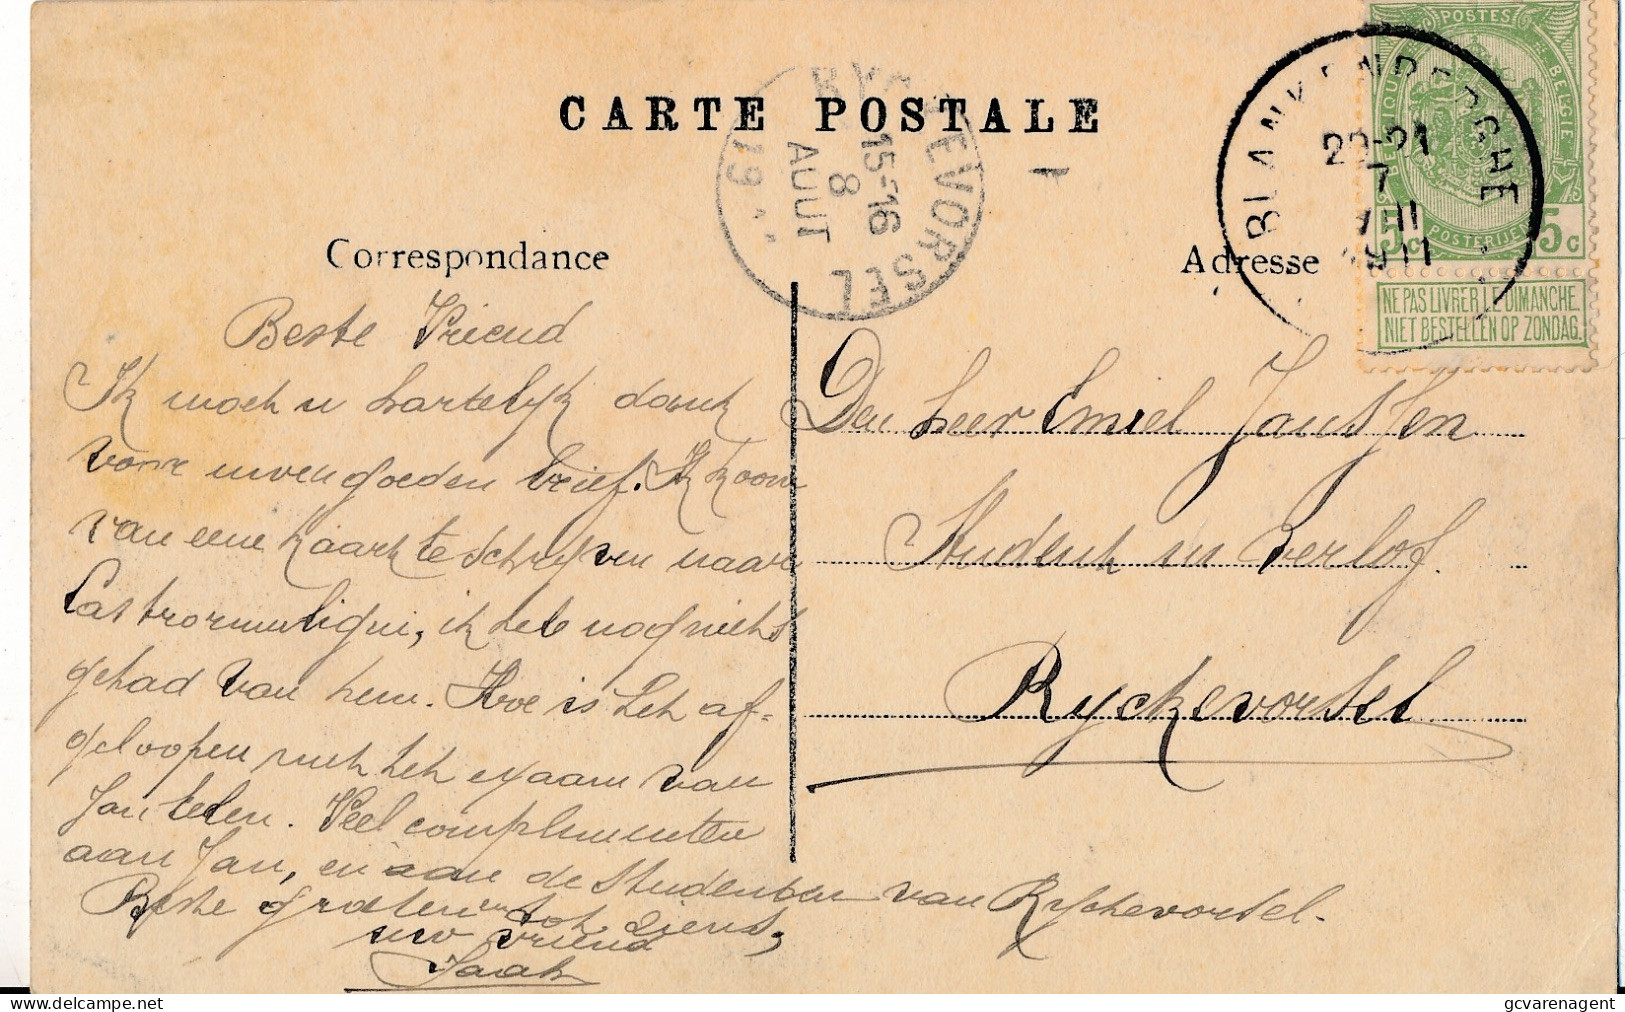 CARTE POSTALE
RYCKEVORSEL
15-16
8
AOUT
19
BLANKENBERGHE
20-21
7
VIII
1911
POSTES
BELGIQUE
BELGIE
POSTERIJEN
5c 5c
NE PAS LIVRER LE DIMANCHE
NIET BESTELLEN OP ZONDAG
Correspondance
Adresse
Beste Vriend
Ik moet u hartelijk dank
voor uwen goeden brief. Ik koom
van eene kaart te schrijven naar
ik heb nog niets
gehad van hem. Hoe is het af=
geloopen met het exaam van
Jan Velen. Veel complimenten
aan Jan, en aan de Studenten van Ryckevorsel.
Beste groeten en tot ziens,
uw vriend
Jaak
Den heer Emiel Janssen
Student in verlof.
Ryckevorsel
gcvarenagent